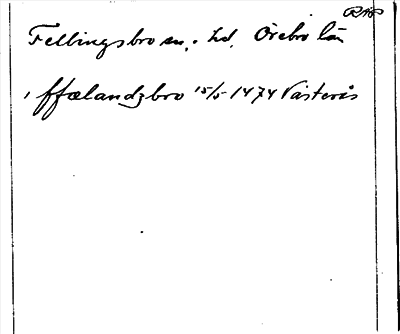 RAP
Fellingsbro sn, hd, Örebro län
i ffælandzbro 15/5 1474 Västerås